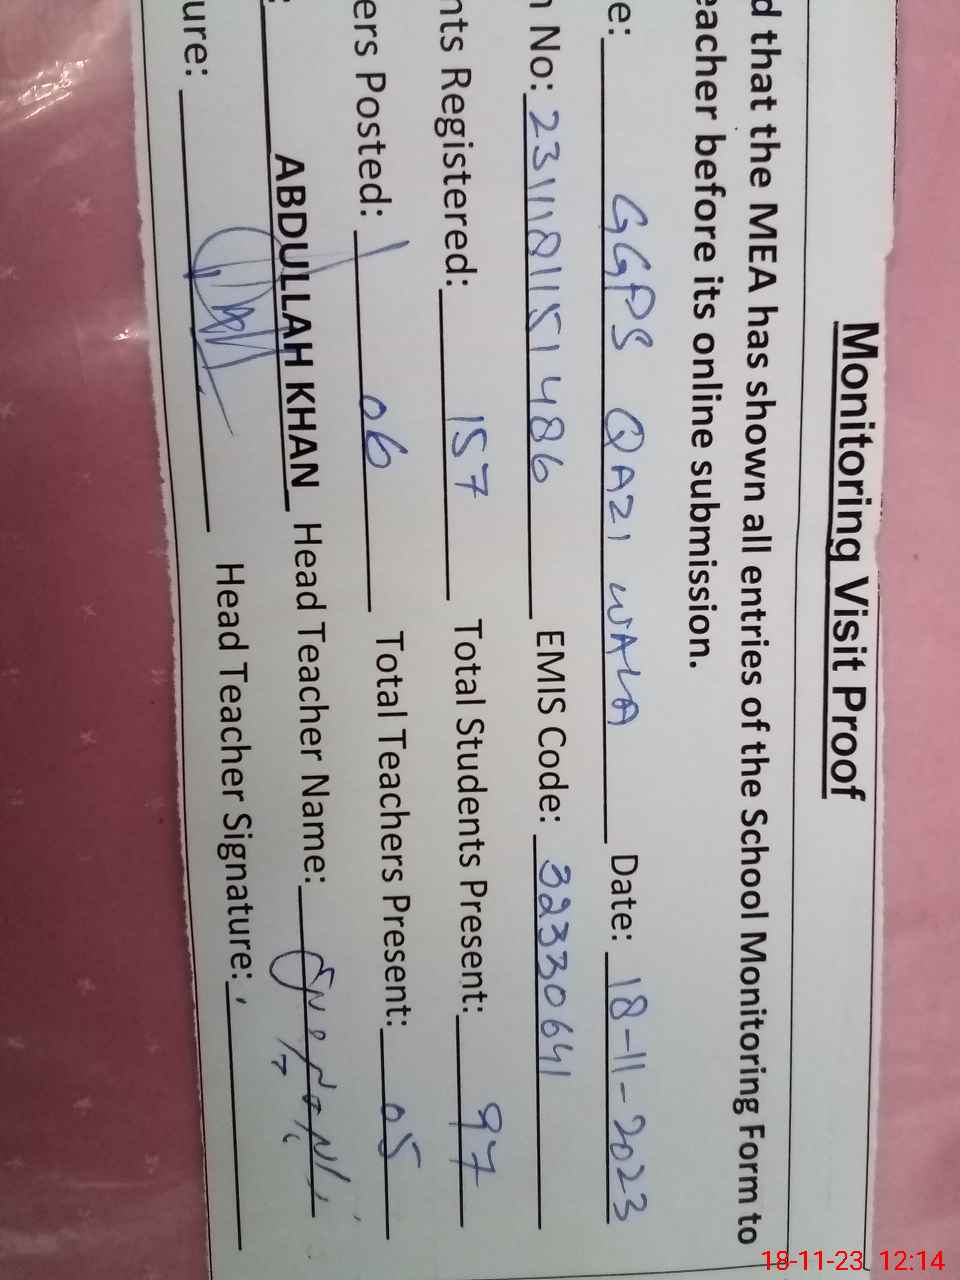 Monitoring Visit Proof
d that the MEA has shown all entries of the School Monitoring Form to
eacher before its online submission.
e: GGPS QAZI WALA Date: 18-11-2023
No: 2311181151486 EMIS Code: 32330641
nts Registered: 157 Total Students Present: 97
ers Posted: 06 Total Teachers Present: 05
: ABDULLAH KHAN Head Teacher Name:
ure: Head Teacher Signature:
18-11-23 12:14